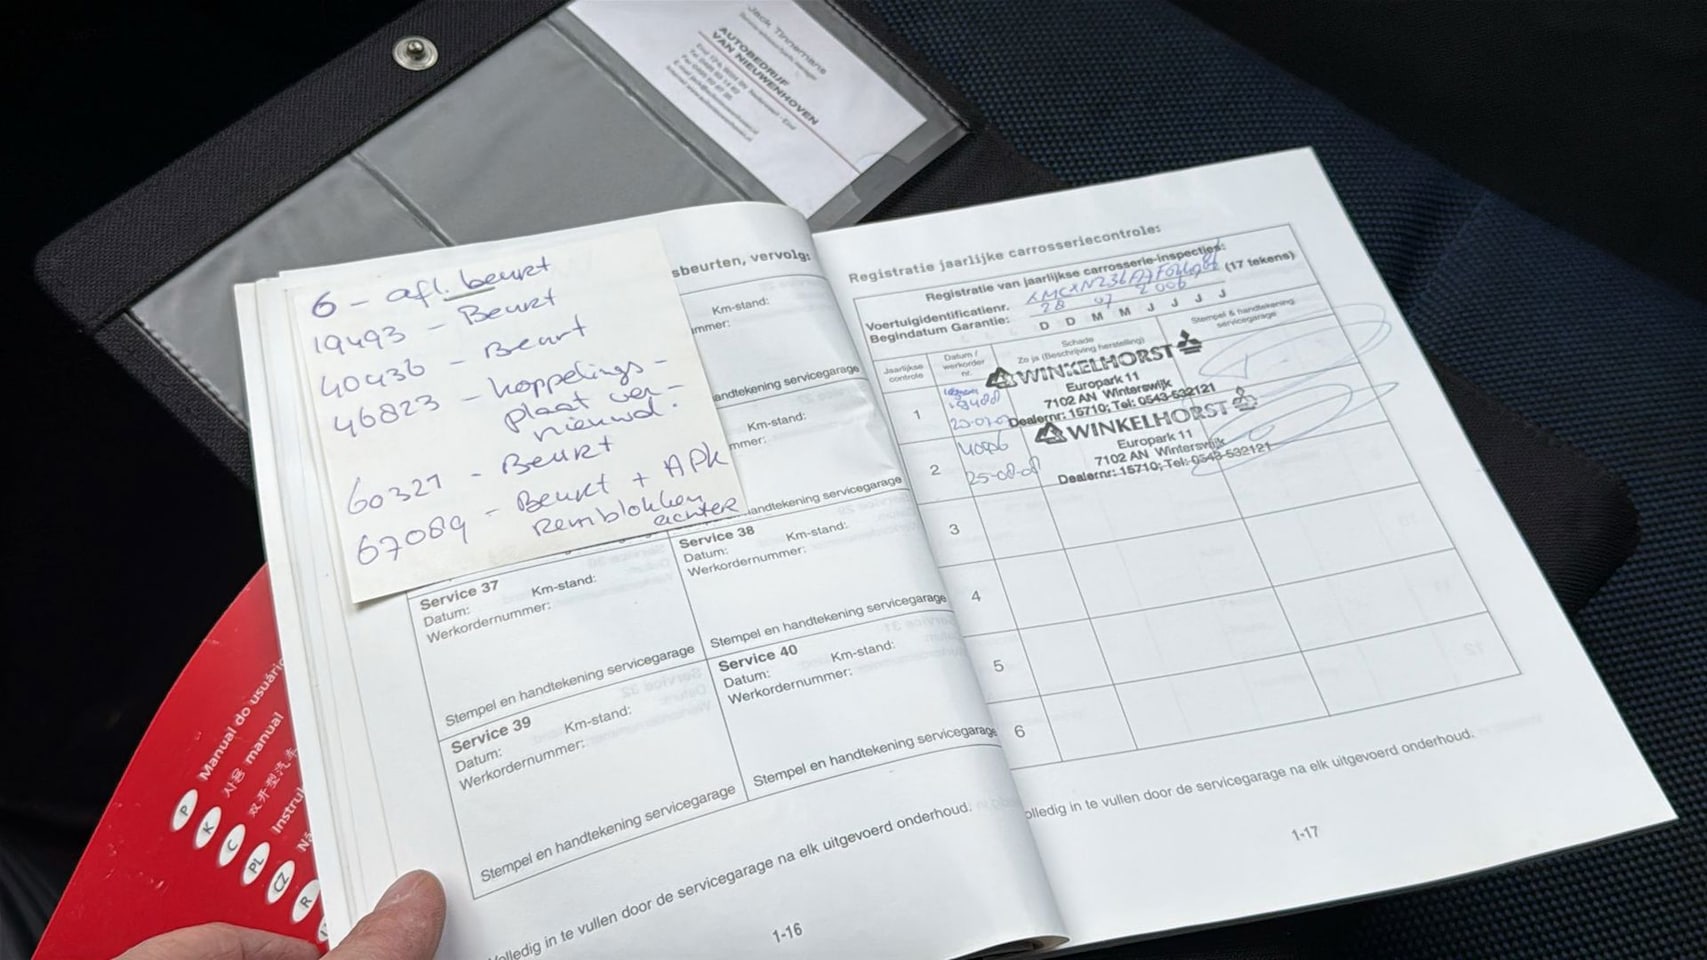 Jack Tinnemans
AUTOBEDRIJF
VAN NIEUWENHOVEN
6 - afl. beurt
19493 - Beurt
40436 - Beurt
46823 - koppelings-
plaat ver-
nieuwd.
60321 - Beurt
67089 - Beurt + APK
Remblokken
achter
sbeurten, vervolg:
Km-stand:
mmer:
andtekening servicegarage
Km-stand:
mmer:
handtekening servicegarage
Service 37
Km-stand:
Datum:
Werkordernummer:
Stempel en handtekening servicegarage
Service 38
Km-stand:
Datum:
Werkordernummer:
Stempel en handtekening servicegarage
Service 39
Km-stand:
Datum:
Werkordernummer:
Stempel en handtekening servicegarage
Service 40
Km-stand:
Datum:
Werkordernummer:
Stempel en handtekening servicegarage
olledig in te vullen door de servicegarage na elk uitgevoerd onderhoud.
1-16
Registratie jaarlijkse carrosseriecontrole:
Registratie van jaarlijkse carrosserie-inspecties:
Voertuigidentificatienr. (17 tekens)
Begindatum Garantie: 28 07 2006
D D M M J J J J
Jaarlijkse controle
Datum / werkorder nr.
Schade
Zo ja (Beschrijving herstelling)
Stempel & handtekening servicegarage
1
WINKELHORST
Europark 11
7102 AN Winterswijk
Dealernr: 15710; Tel: 0543-532121
2
25-08-08
WINKELHORST
Europark 11
7102 AN Winterswijk
Dealernr: 15710; Tel: 0543-532121
3
4
5
6
olledig in te vullen door de servicegarage na elk uitgevoerd onderhoud.
1-17
P Manual do usuário
K 사용 manual
C
PL Instruk
CZ
R